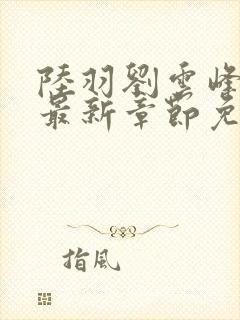 陸羽劉雲峰
最新章節免
指風